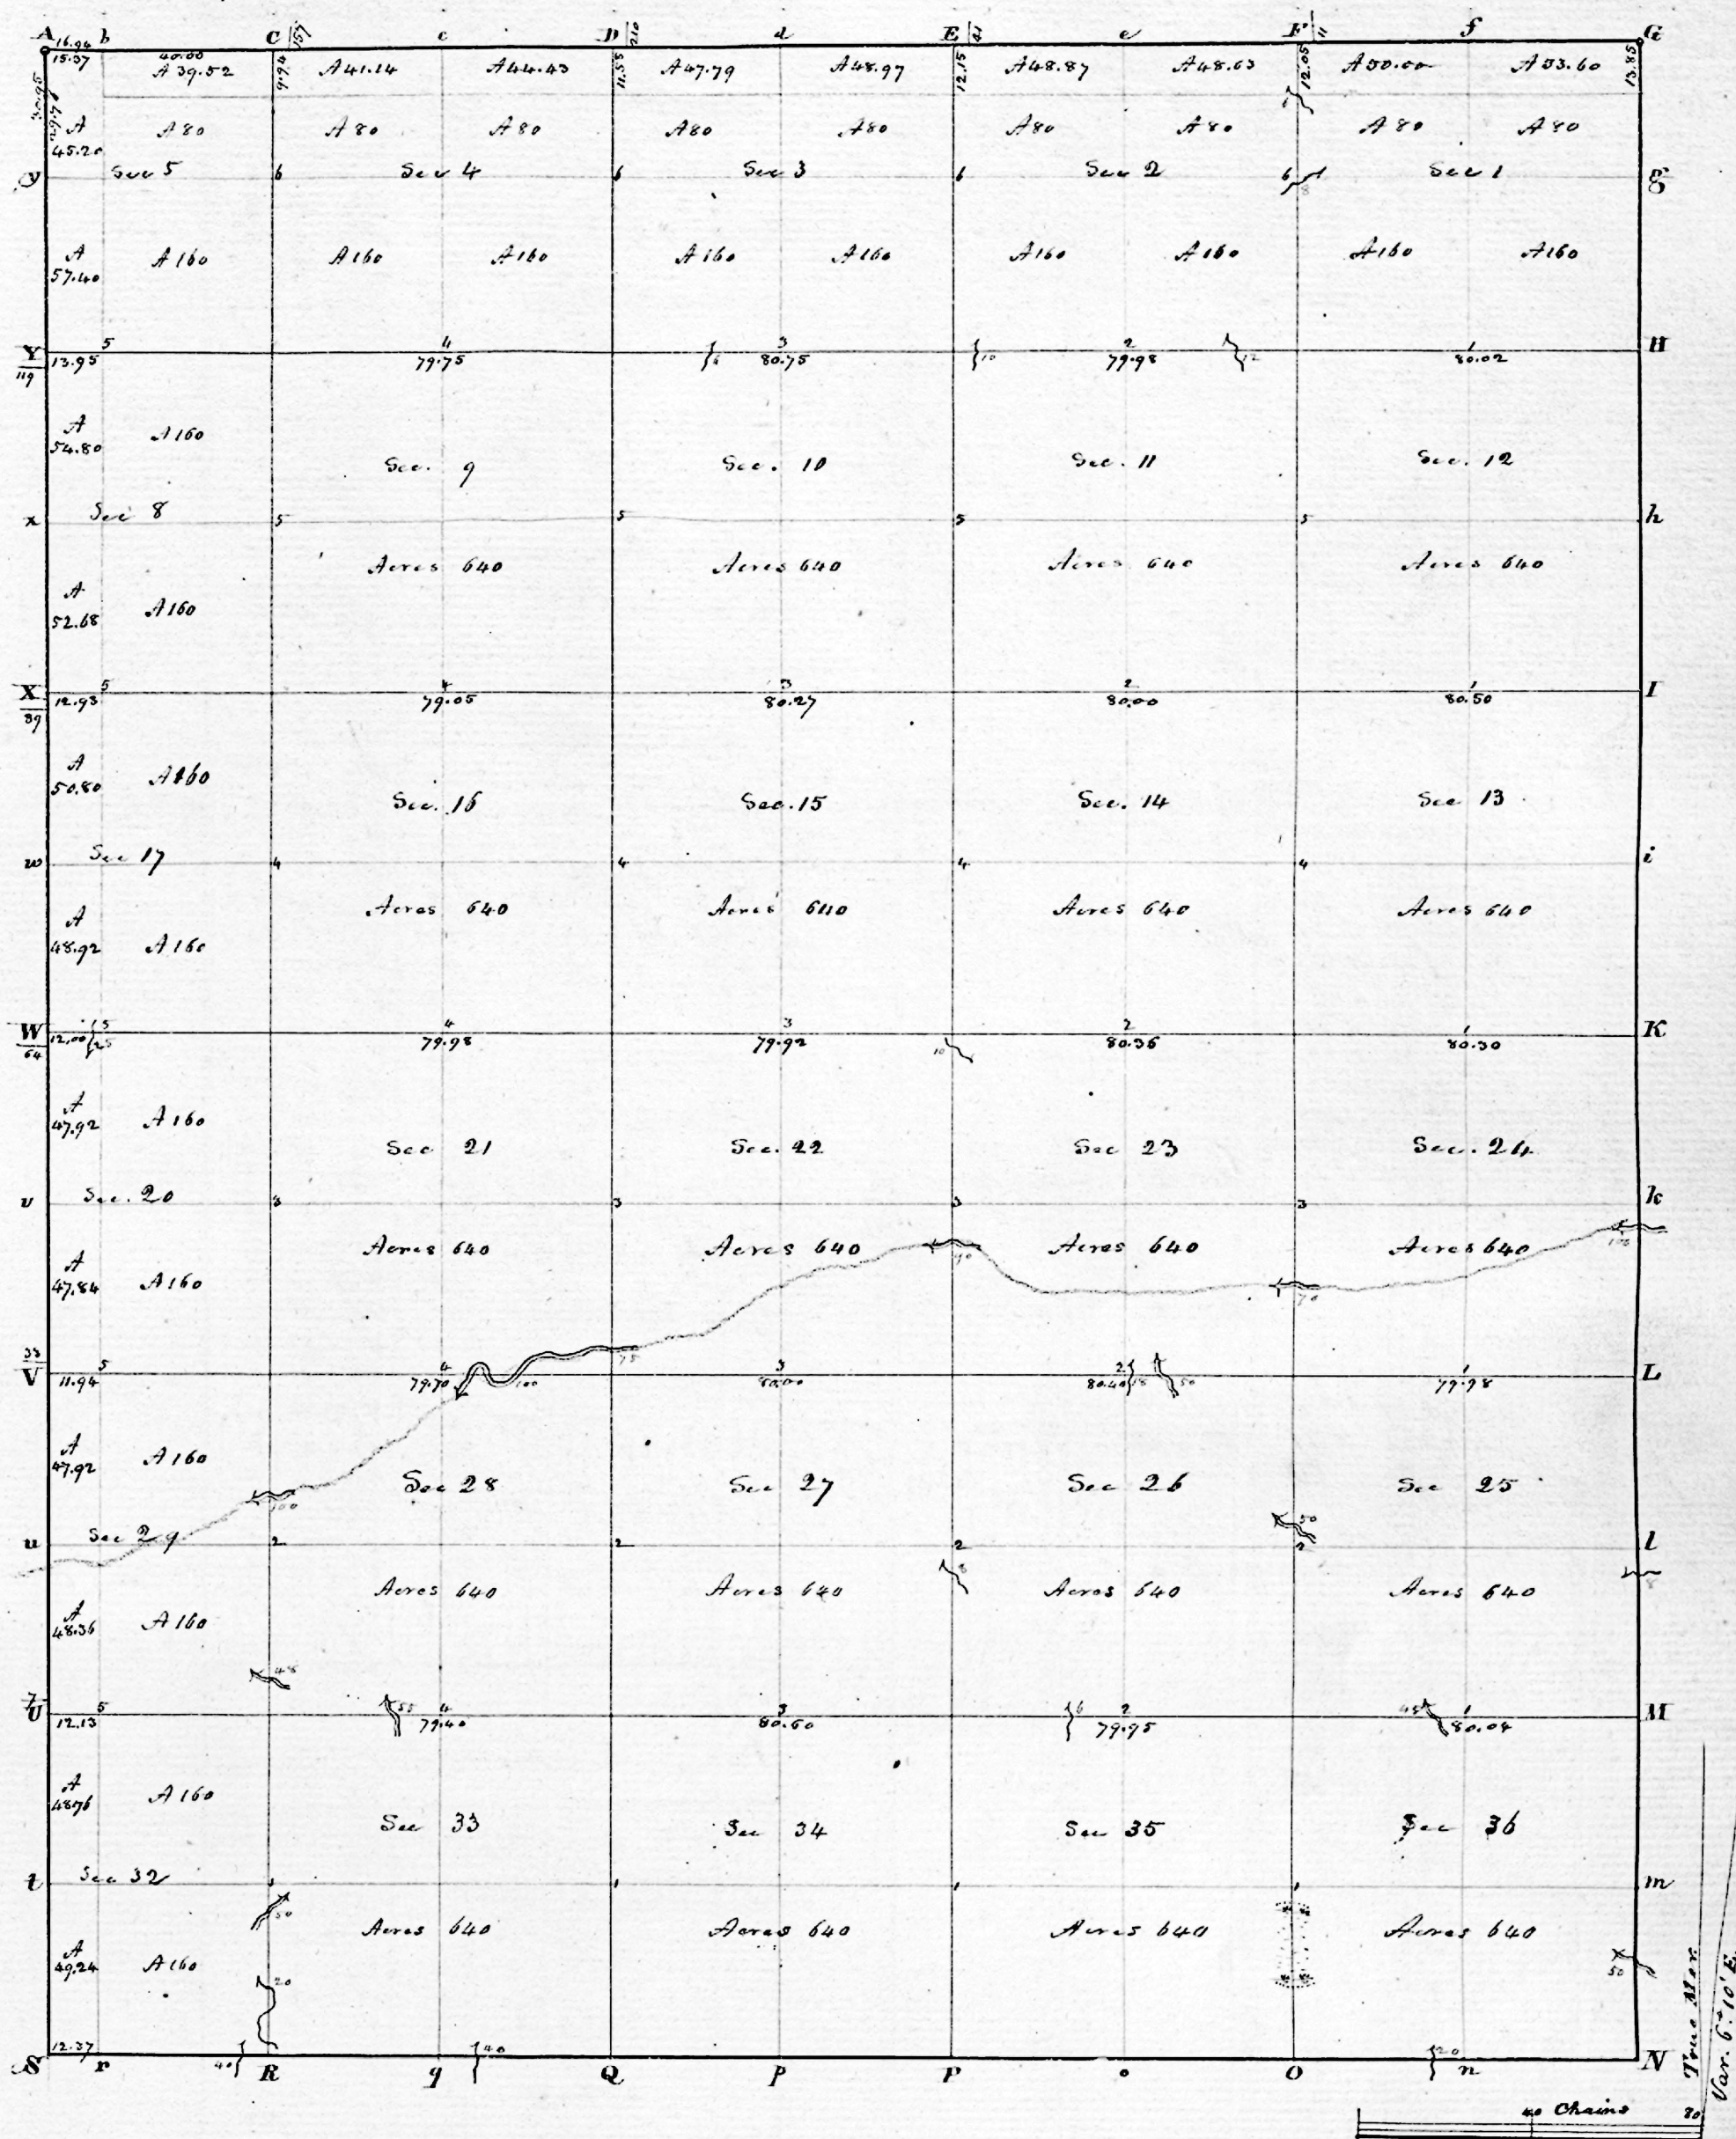 A b C 157 c D 210 d E 41 e F 11 f G
16.94
15.37 40.00
A 39.52 9.94 A 41.14 A 44.43 11.55 A 47.79 A 48.97 12.15 A 48.87 A 48.63 12.05 A 50.00 A 53.60 13.85
30.95
A 45.20 A 80 A 80 A 80 A 80 A 80 A 80 A 80 A 80 A 80
y Sec 5 6 Sec 4 6 Sec 3 6 Sec 2 6 8 Sec 1 g
A 57.40 A 160 A 160 A 160 A 160 A 160 A 160 A 160 A 160 A 160
Y 119 13.95 5 4 79.75 6 3 80.75 10 2 79.98 12 1 80.02 H
A 54.80 A 160
Sec. 9 Sec. 10 Sec. 11 Sec. 12
x Sec 8 5 5 5 5 h
Acres 640 Acres 640 Acres 640 Acres 640
A 52.68 A 160
X 89 12.93 5 4 79.05 3 80.27 2 80.00 1 80.50 I
A 50.80 A 160
Sec. 16 Sec. 15 Sec. 14 Sec 13
w Sec 17 4 4 4 4 i
Acres 640 Acres 640 Acres 640 Acres 640
A 48.92 A 160
W 64 12.00 25 5 4 79.98 3 79.92 10 2 80.36 1 80.30 K
A 47.92 A 160
Sec 21 Sec. 22 Sec 23 Sec. 24
v Sec. 20 3 3 3 3 k
Acres 640 Acres 640 90 Acres 640 70 Acres 640 100
A 47.84 A 160
33 V 11.94 5 4 79.70 100 75 3 80.00 2 80.40 18 50 1 79.98 L
A 47.92 A 160
Sec 28 Sec 27 Sec 26 Sec 25
100 50
u Sec 29 2 2 2 2 l
Acres 640 Acres 640 8 Acres 640 Acres 640 8
A 48.36 A 160
48
7 U 12.13 5 55 4 79.40 3 80.60 6 2 79.95 45 1 80.04 M
A 48.76 A 160
Sec 33 Sec 34 Sec 35 Sec 36
t Sec 32 1 1 1 1 m
50 Acres 640 Acres 640 Acres 640 Acres 640
A 49.24 A 160 20 50
12.37
S r 40 R q 40 Q p P o O 20 n N
True Mer.
Var. 6° 10' E.
40 Chains 80